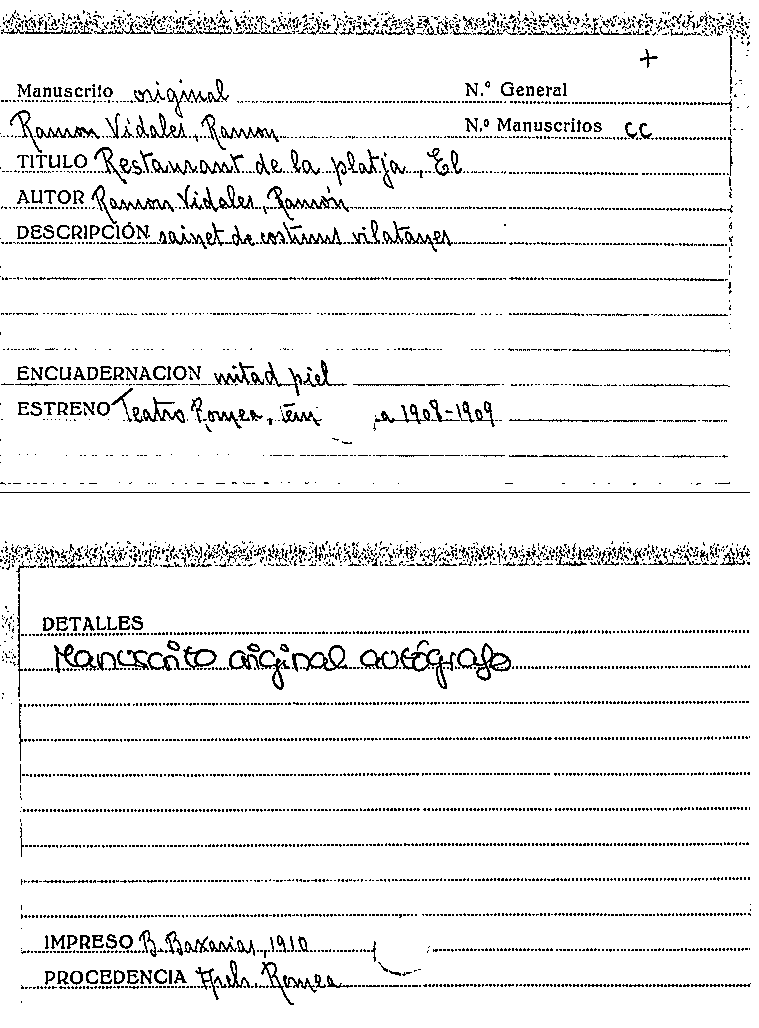 +
Manuscrito original N.º General
Ramon Vidales, Ramon N.º Manuscritos CC
TITULO Restaurant de la platja, El
AUTOR Ramon Vidales, Ramón
DESCRIPCIÓN sainet de costums vilatanes
ENCUADERNACION mitad piel
ESTRENO Teatro Romea, tem a 1908-1909
DETALLES
Manuscrito original autógrafo
IMPRESO B. Baxarias, 1910
PROCEDENCIA Romea